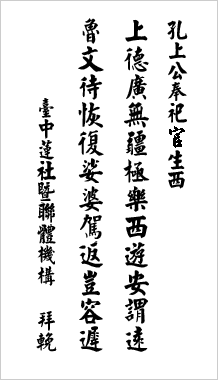 孔上公奉祀官生西
上德廣無疆極樂西遊安謂遠
魯文待恢復娑婆駕返豈容遲
臺中蓮社暨聯體機構 拜輓